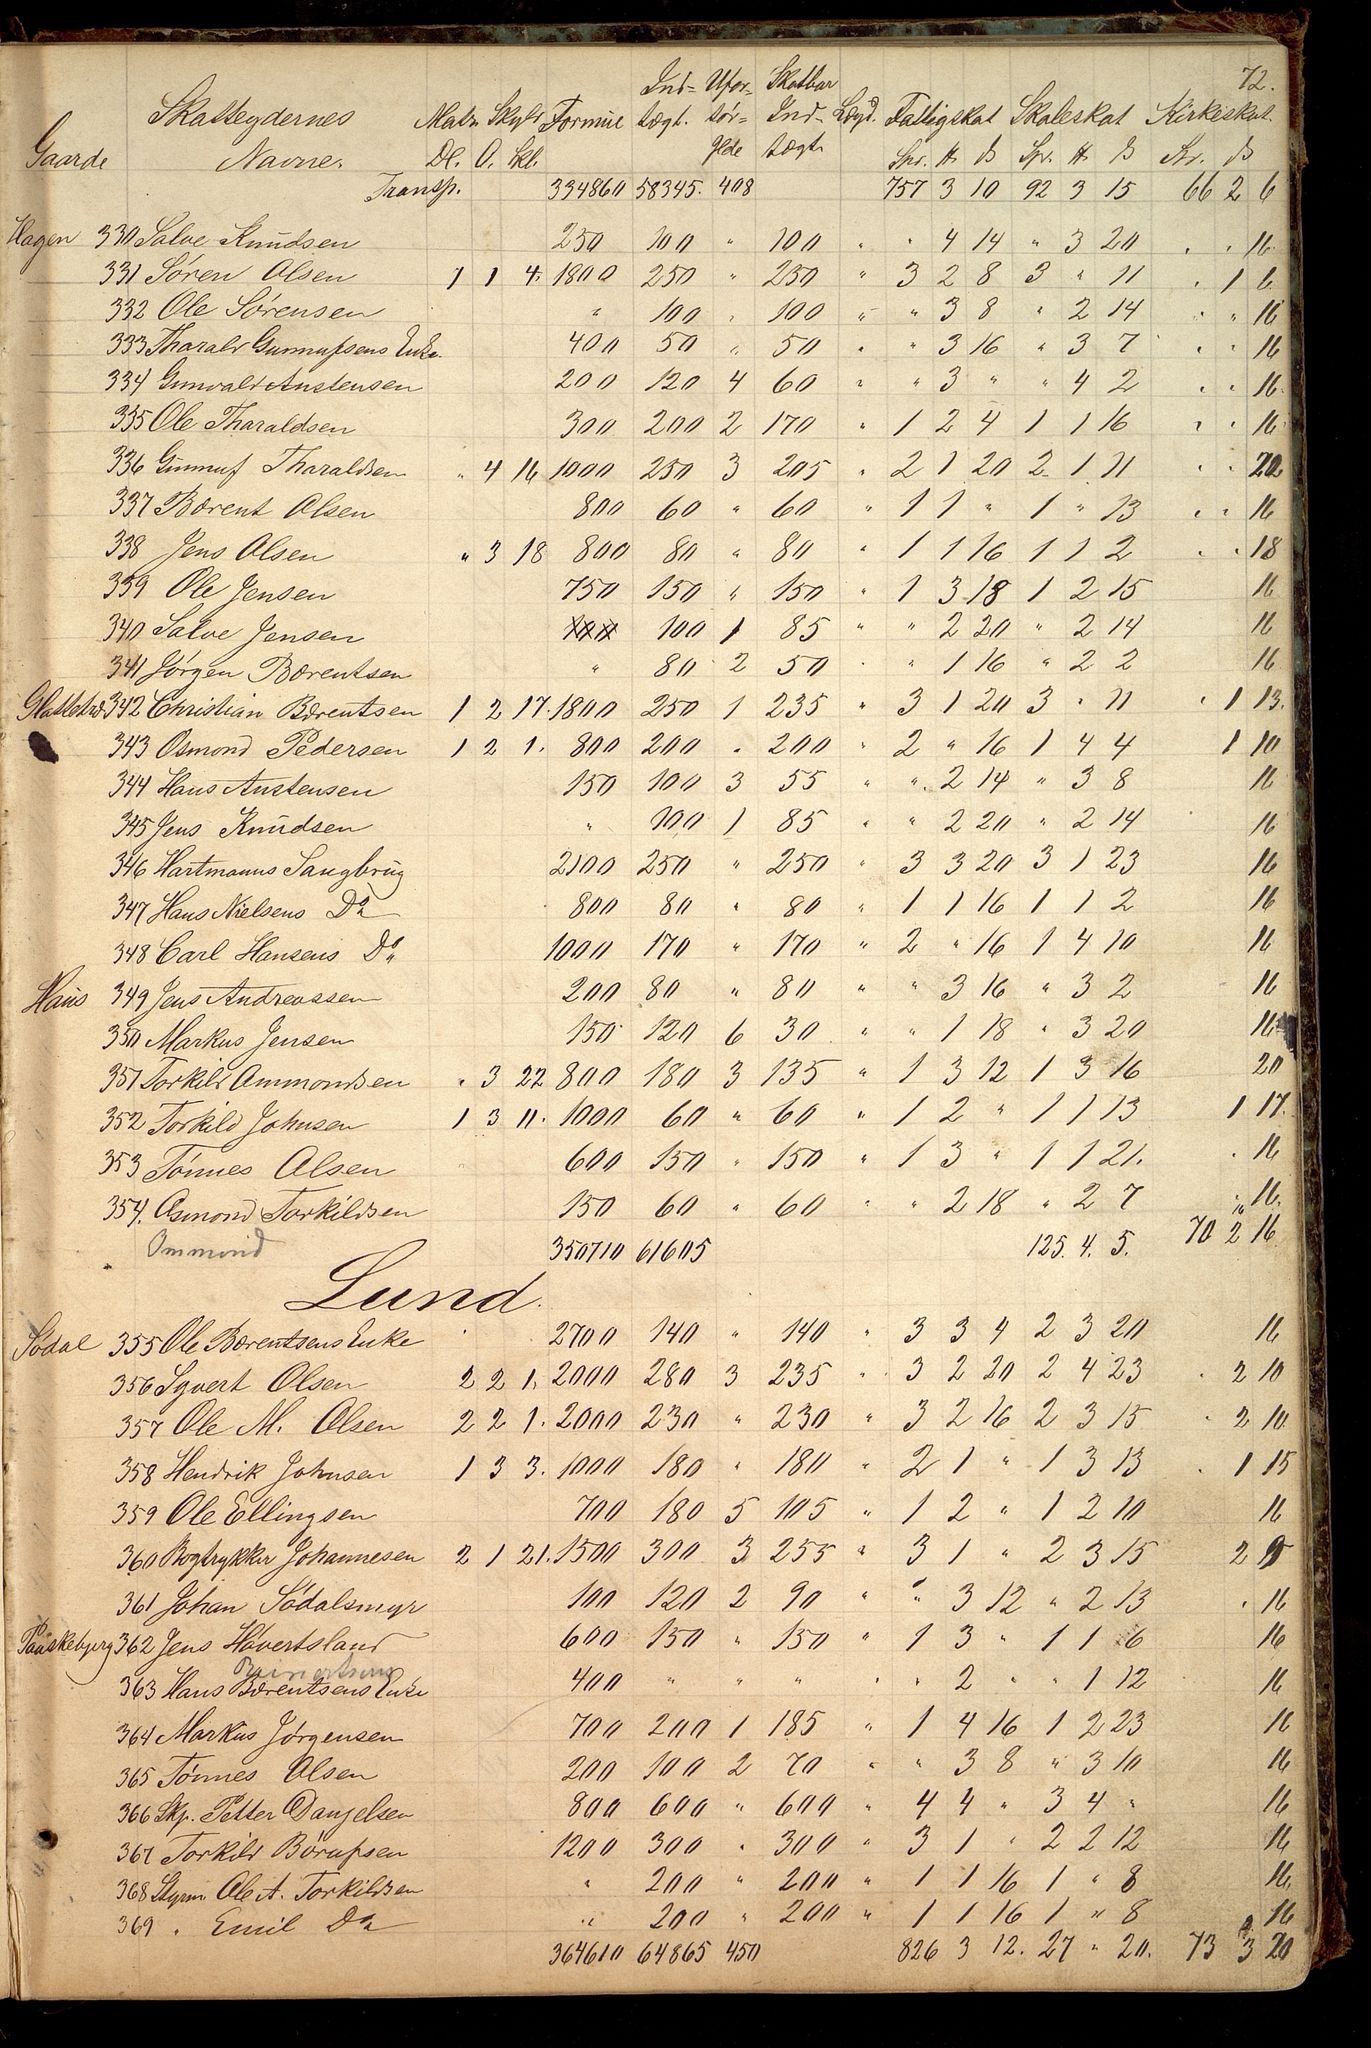 72.
Gaarde Skatteydernes Navne. Matr. Skyld Dl. O. Skl. Formue Ind- tægt. Ufor- sør- gede Skatbar Ind- tægt. Lægd. Fattigskat Spr. # ß Skoleskat Spr. # ß Kirkeskat. ß
Transp. 334860 58345. 408 757 3 10 92 3 15 66 2 6
Hagen 330 Salve Knudsen 250 100 " 100 " " 4 14 " 3 20 " " 16
331 Søren Olsen 1 1 4. 1800 250 " 250 " 3 2 8 3 " 11 " 1 6
332 Ole Sørensen " 100 " 100 " " 3 8 " 2 14 " " 16
333 Tharald Gunnufsens Enke 400 50 " 50 " " 3 16 " 3 7 " " 16
334 Gunvald Anstensen 200 120 4 60 " " 3 " " 4 2 " " 16
335 Ole Tharaldsen 300 200 2 170 " 1 2 4 1 1 16 " " 16
336 Gunnuf Tharaldsen " 4 16 1000 250 3 205 " 2 1 20 2 1 11 " " 20
337 Bærent Olsen 800 60 " 60 " 1 1 " 1 " 13 " " 16
338 Jens Olsen " 3 18 800 80 " 80 " 1 1 16 1 1 2 " " 18
339 Ole Jensen 750 150 " 150 " 1 3 18 1 2 15 16
340 Salve Jensen 100 1 85 " " 2 20 " 2 14 16
341 Jørgen Bærentsen " 80 2 50 " " 1 16 " 2 2 16
Glattetræ 342 Christian Bærentsen 1 2 17. 1800 250 1 235 " 3 1 20 3 " 11 " 1 13.
343 Osmond Pedersen 1 2 1. 800 200 " 200 " 2 " 16 1 4 4 1 10
344 Hans Anstensen 150 100 3 55 " " 2 14 " 3 8 16
345 Jens Knudsen " 100 1 85 " " 2 20 " 2 14 16
346 Hartmanns Saugbrug 2100 250 " 250 " 3 3 20 3 1 23 16
347 Hans Nielsens Do 800 80 " 80 " 1 1 16 1 1 2 16
348 Carl Hansens Do 1000 170 " 170 " 2 " 16 1 4 10 16
Haus 349 Jens Andreassen 200 80 " 80 " " 3 16 " 3 2 16
350 Markus Jensen 150 120 6 30 " " 1 18 " 3 20 16
351 Torkild Ommondsen " 3 22 800 180 3 135 " 1 3 12 1 3 16 20
352 Torkild Johnsen 1 3 11. 1000 60 " 60 " 1 2 " 1 1 13 1 17.
353 Tønnes Olsen 600 150 " 150 " 1 3 " 1 1 21. " 16
354. Osmond Torkildsen 150 60 " 60 " " 2 18 " 2 7 " 16.
Ommond 350710 61605 125. 4. 5. 70 2 16
Lund.
Sødal 355 Ole Bærentsens Enke 2700 140 " 140 " 3 3 4 2 3 20 16
356 Syvert Olsen 2 2 1. 2000 280 3 235 " 3 2 20 2 4 23 " 2 10
357 Ole M. Olsen 2 2 1. 2000 230 " 230 " 3 2 16 2 3 15 " 2 10
358 Hendrik Johnsen 1 3 3. 1000 180 " 180 " 2 1 " 1 3 13 " 1 15
359 Ole Ellingsen 700 180 5 105 " 1 2 " 1 2 10 16
360 Bogtrykker Johannesen 2 1 21. 1500 300 3 255 " 3 1 " 2 3 15 2 9
361 Johan Sødalsmyr 100 120 2 90 " " 3 12 " 2 13 " 16
Paaskebjerg 362 Jens Høvertsland 600 150 " 150 " 1 3 " 1 1 6 16
Reinertsens
363 Hans Bærentsens Enke 400 " " " " " 2 " " 1 12 16
364 Markus Jørgensen 700 200 1 185 " 1 4 16 1 2 23 16
365 Tønnes Olsen 200 100 2 70 " " 3 8 " 3 10 16
366 Skp. Petter Danjelsen 800 600 " 600 " 4 4 " 3 4 " 16
367 Torkild Børufsen 1200 300 " 300 " 3 1 " 2 2 12 16
368 Styrm. Ole A. Torkildsen " 200 " 200 " 1 1 16 1 " 8 16.
369 " Emil Do " 200 " 200 " 1 1 16 1 " 8 16
364610 64865 450 826 3 12. 27 " 20. 73 3 20